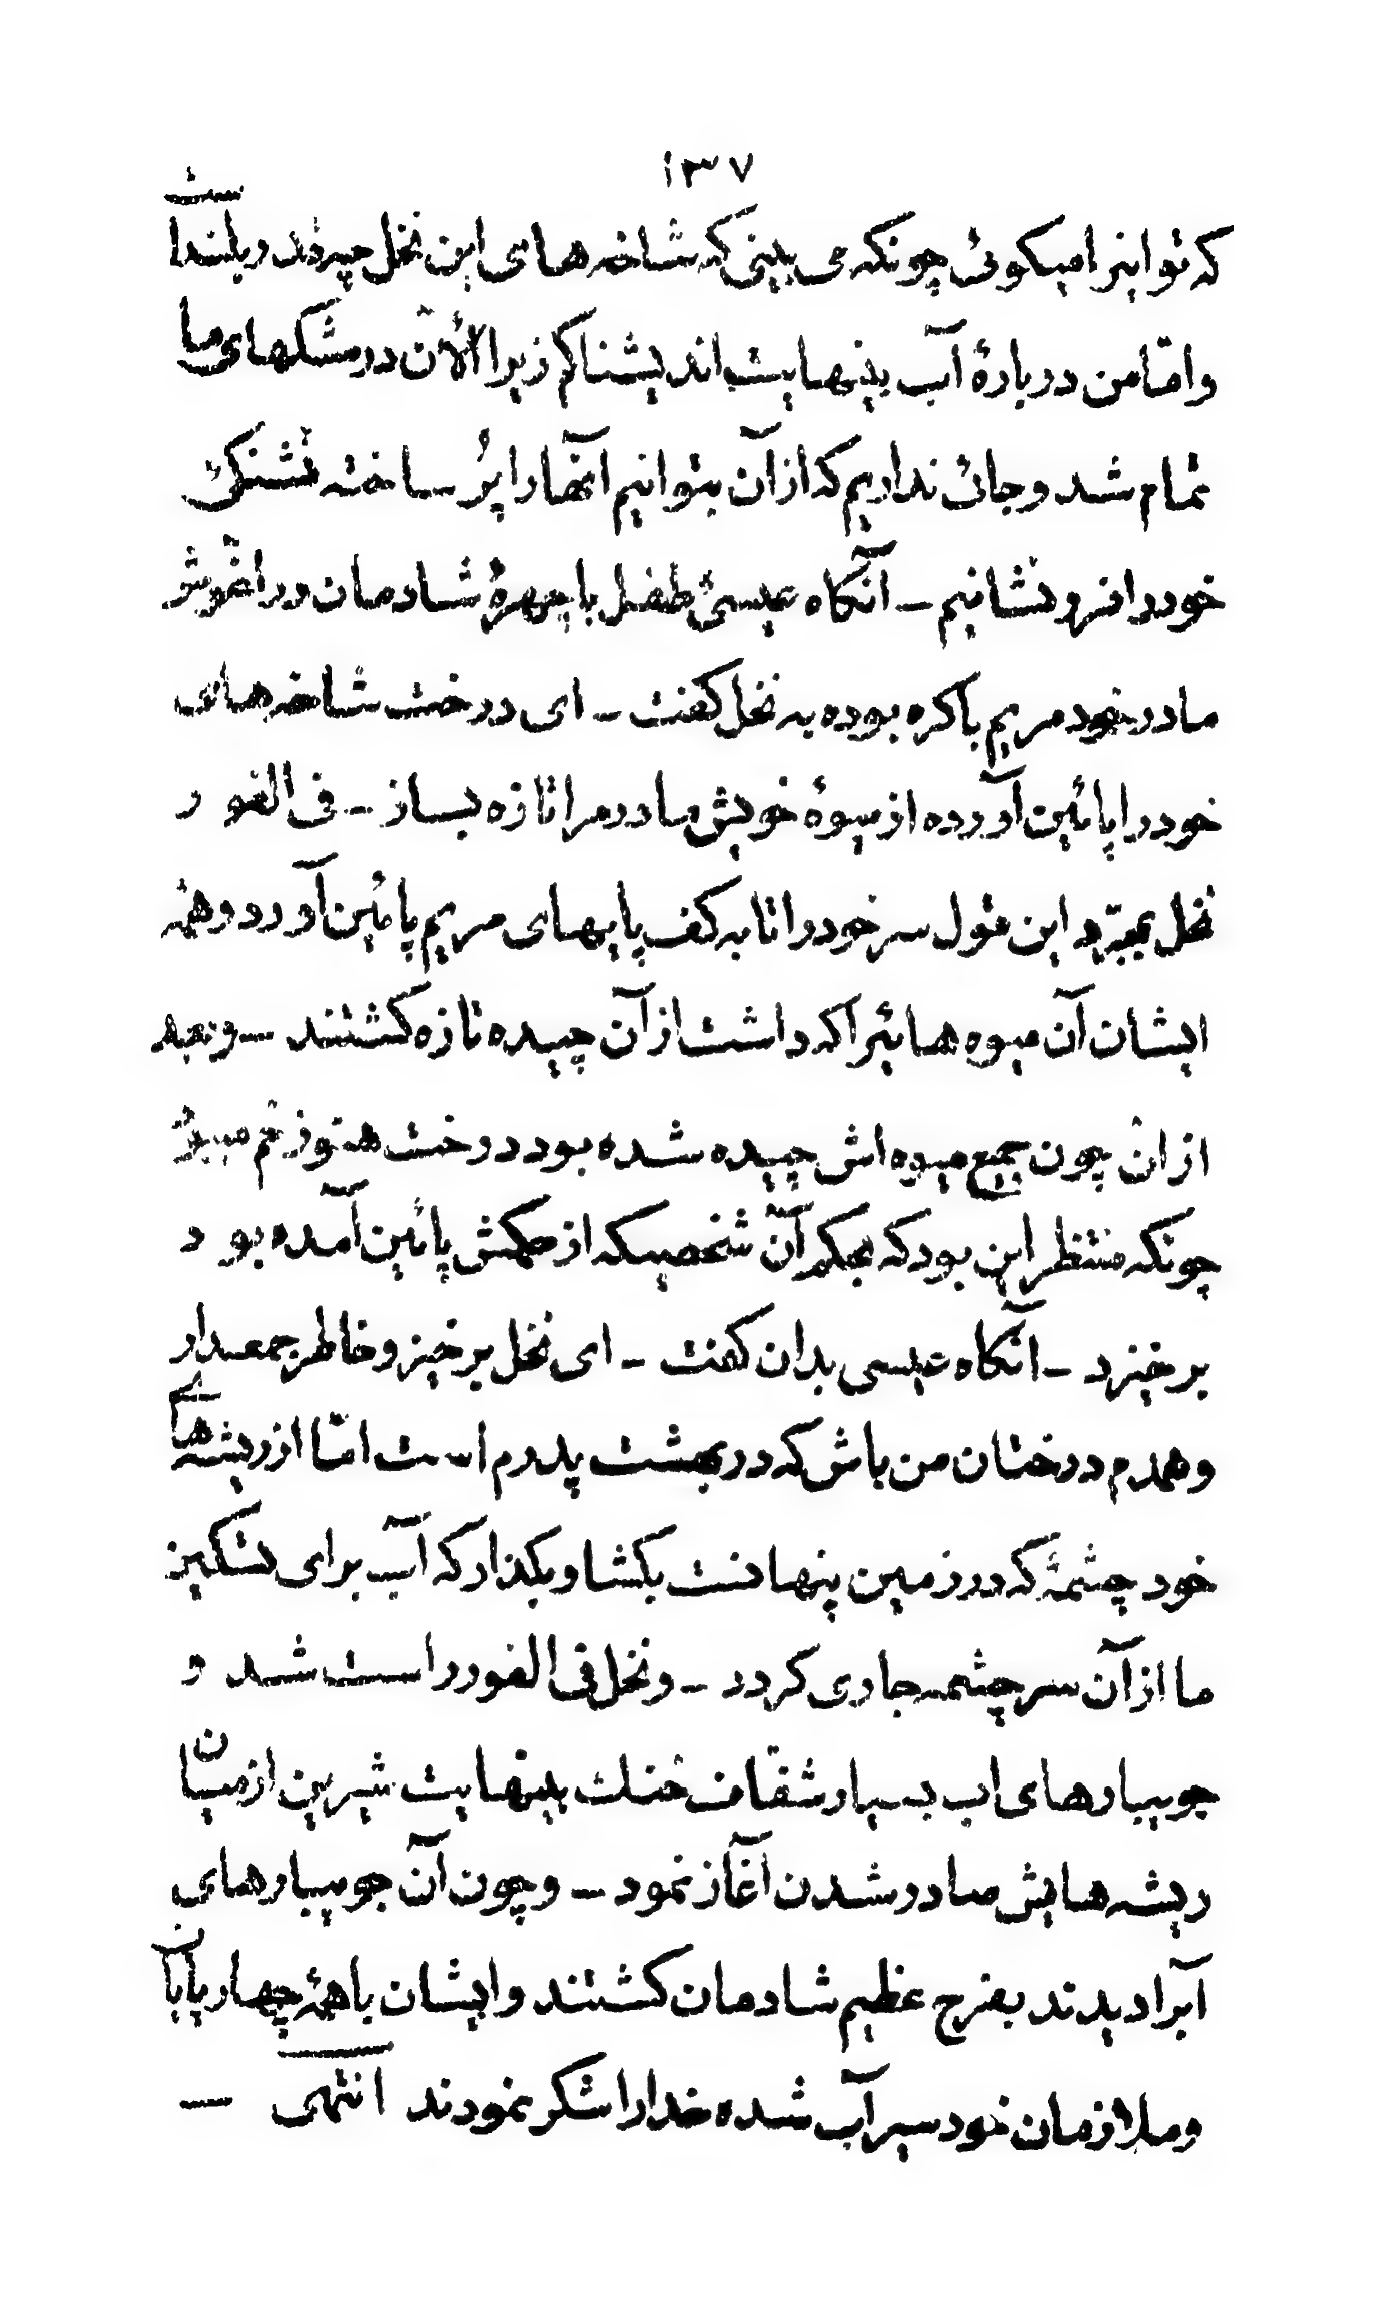 ۱۳۷
که تو اینرا میکوئی چونکه می بینی که شاخه های این نخل چه قدر بلند است
و امّا من دربارهٔ آب بینهایت اندیشناکم زیرا الأن در مشکهای ما
تمام شد و جائی نداریم که از آن بتوانیم آنها را پُر ساخته تشنکی
خود را فرو نشانیم – آنکاه عیسیٔ طفل با چهرهٔ شادمان در اغوش
مادر خود مریم باکره بوده به نخل کفت – ای درخت شاخه های
خود را پائین آورده از میوهٔ خویش مادر مرا تازه بساز – فی الفور
نخل بمجرّد این قول سر خود را تا به کف پایهای مریم پائین آورد و همه
ایشان آن میوه هائیرا که داشت از آن چیده تازه کشتند – و بعد
از ان چون جمیع میوه اش چیده شده بود درخت هنوز خم میبود
چونکه منتظر این بود که بحکم آن شخصیکه از حکمش پائین آمده بود
برخیزد – آنکاه عیسی بدان کفت – ای نخل برخیز و خاطر جمعدار
و همدم درختان من باش که در بهشت پدرم است امّا از ریشه های
خود چشمهٔ که در زمین پنهانست بکشا و بکذار که آب برای تسکین
ما از آن سرچشمه جاری کردد – و نخل فی الفور راست شد و
جویبارهای اب بسیار شفّاف خنک بینهایت شیرین از میان
ریشه هایش صادر شدن آغاز نمود – و چون آن جویبارهای
آبرا دیدند بفرح عظیم شادمان کشتند و ایشان با همهٔ چهارپایان
و ملازمان خود سیرآب شده خدا را شکر نمودند انتهی –